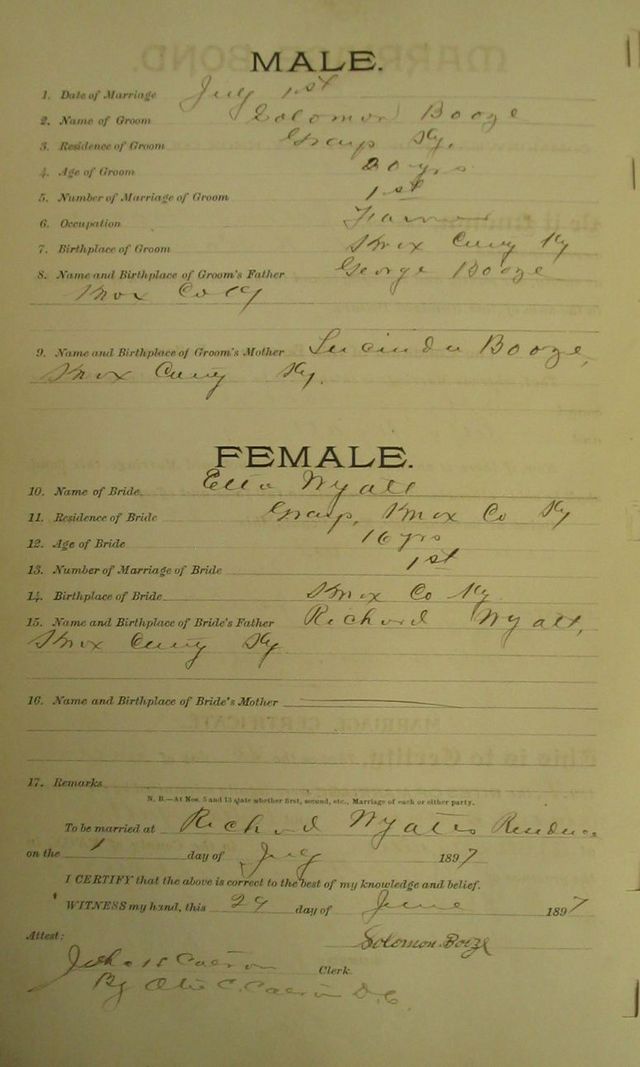 MALE.
1. Date of Marriage July 1st
2. Name of Groom Solomon Booze
3. Residence of Groom Grasp Ky.
4. Age of Groom 20 yrs
5. Number of Marriage of Groom 1st
6. Occupation Farmer
7. Birthplace of Groom Knox Ky
8. Name and Birthplace of Groom's Father George Booze
Knox Co Ky
9. Name and Birthplace of Groom's Mother Lucinda Booze,
Knox Ky.
FEMALE.
10. Name of Bride Etta Wyatt
11. Residence of Bride Knox Co Ky
12. Age of Bride 16 yrs
13. Number of Marriage of Bride 1st
14. Birthplace of Bride Knox Co Ky.
15. Name and Birthplace of Bride's Father Richard Wyatt,
Knox Ky
16. Name and Birthplace of Bride's Mother
17. Remarks
N. B.—At Nos. 5 and 13 state whether first, second, etc., Marriage of each or either party.
To be married at Richard Wyatts Residence
on the 1 day of July 1897
I CERTIFY that the above is correct to the best of my knowledge and belief.
WITNESS my hand, this 29 day of June 1897
Attest: Solomon Booze
Clerk.
By C. D.C.